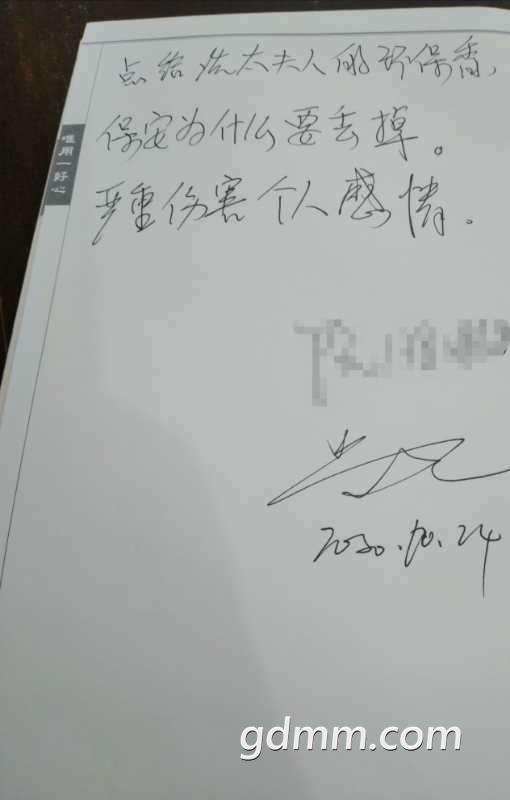 点给冼太夫人的环保香,
保安为什么要丢掉。
严重伤害个人感情。
唯用一好心
2020.10.24
gdmm.com